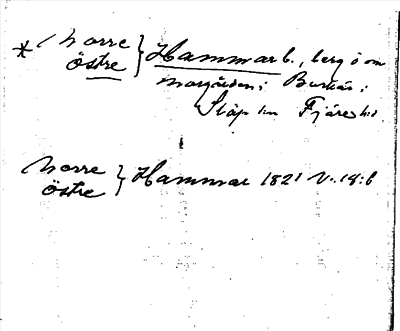 * Norre
östre } Hammar b., berg ö om
morgården i Buskär i
Släp sn Fjäre hd
Norre
östre } Hammar 1821 V. 18:b